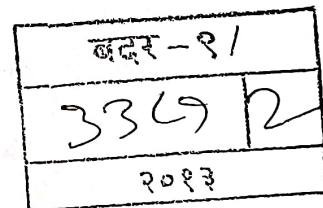 बदर - १/
3369 2
२०१३